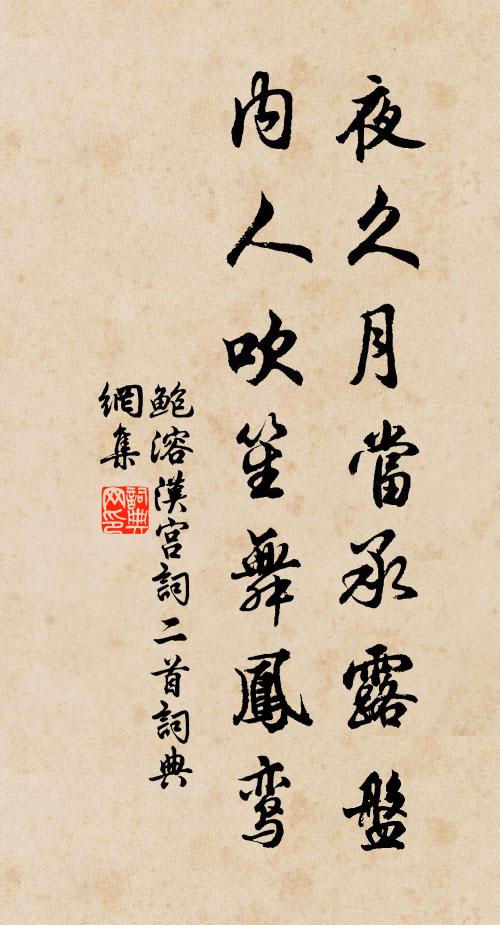 夜久月當承露盤
内人吹笙舞鳳鸾
鮑溶漢宮詞二首詞典
網集
詞典
网印